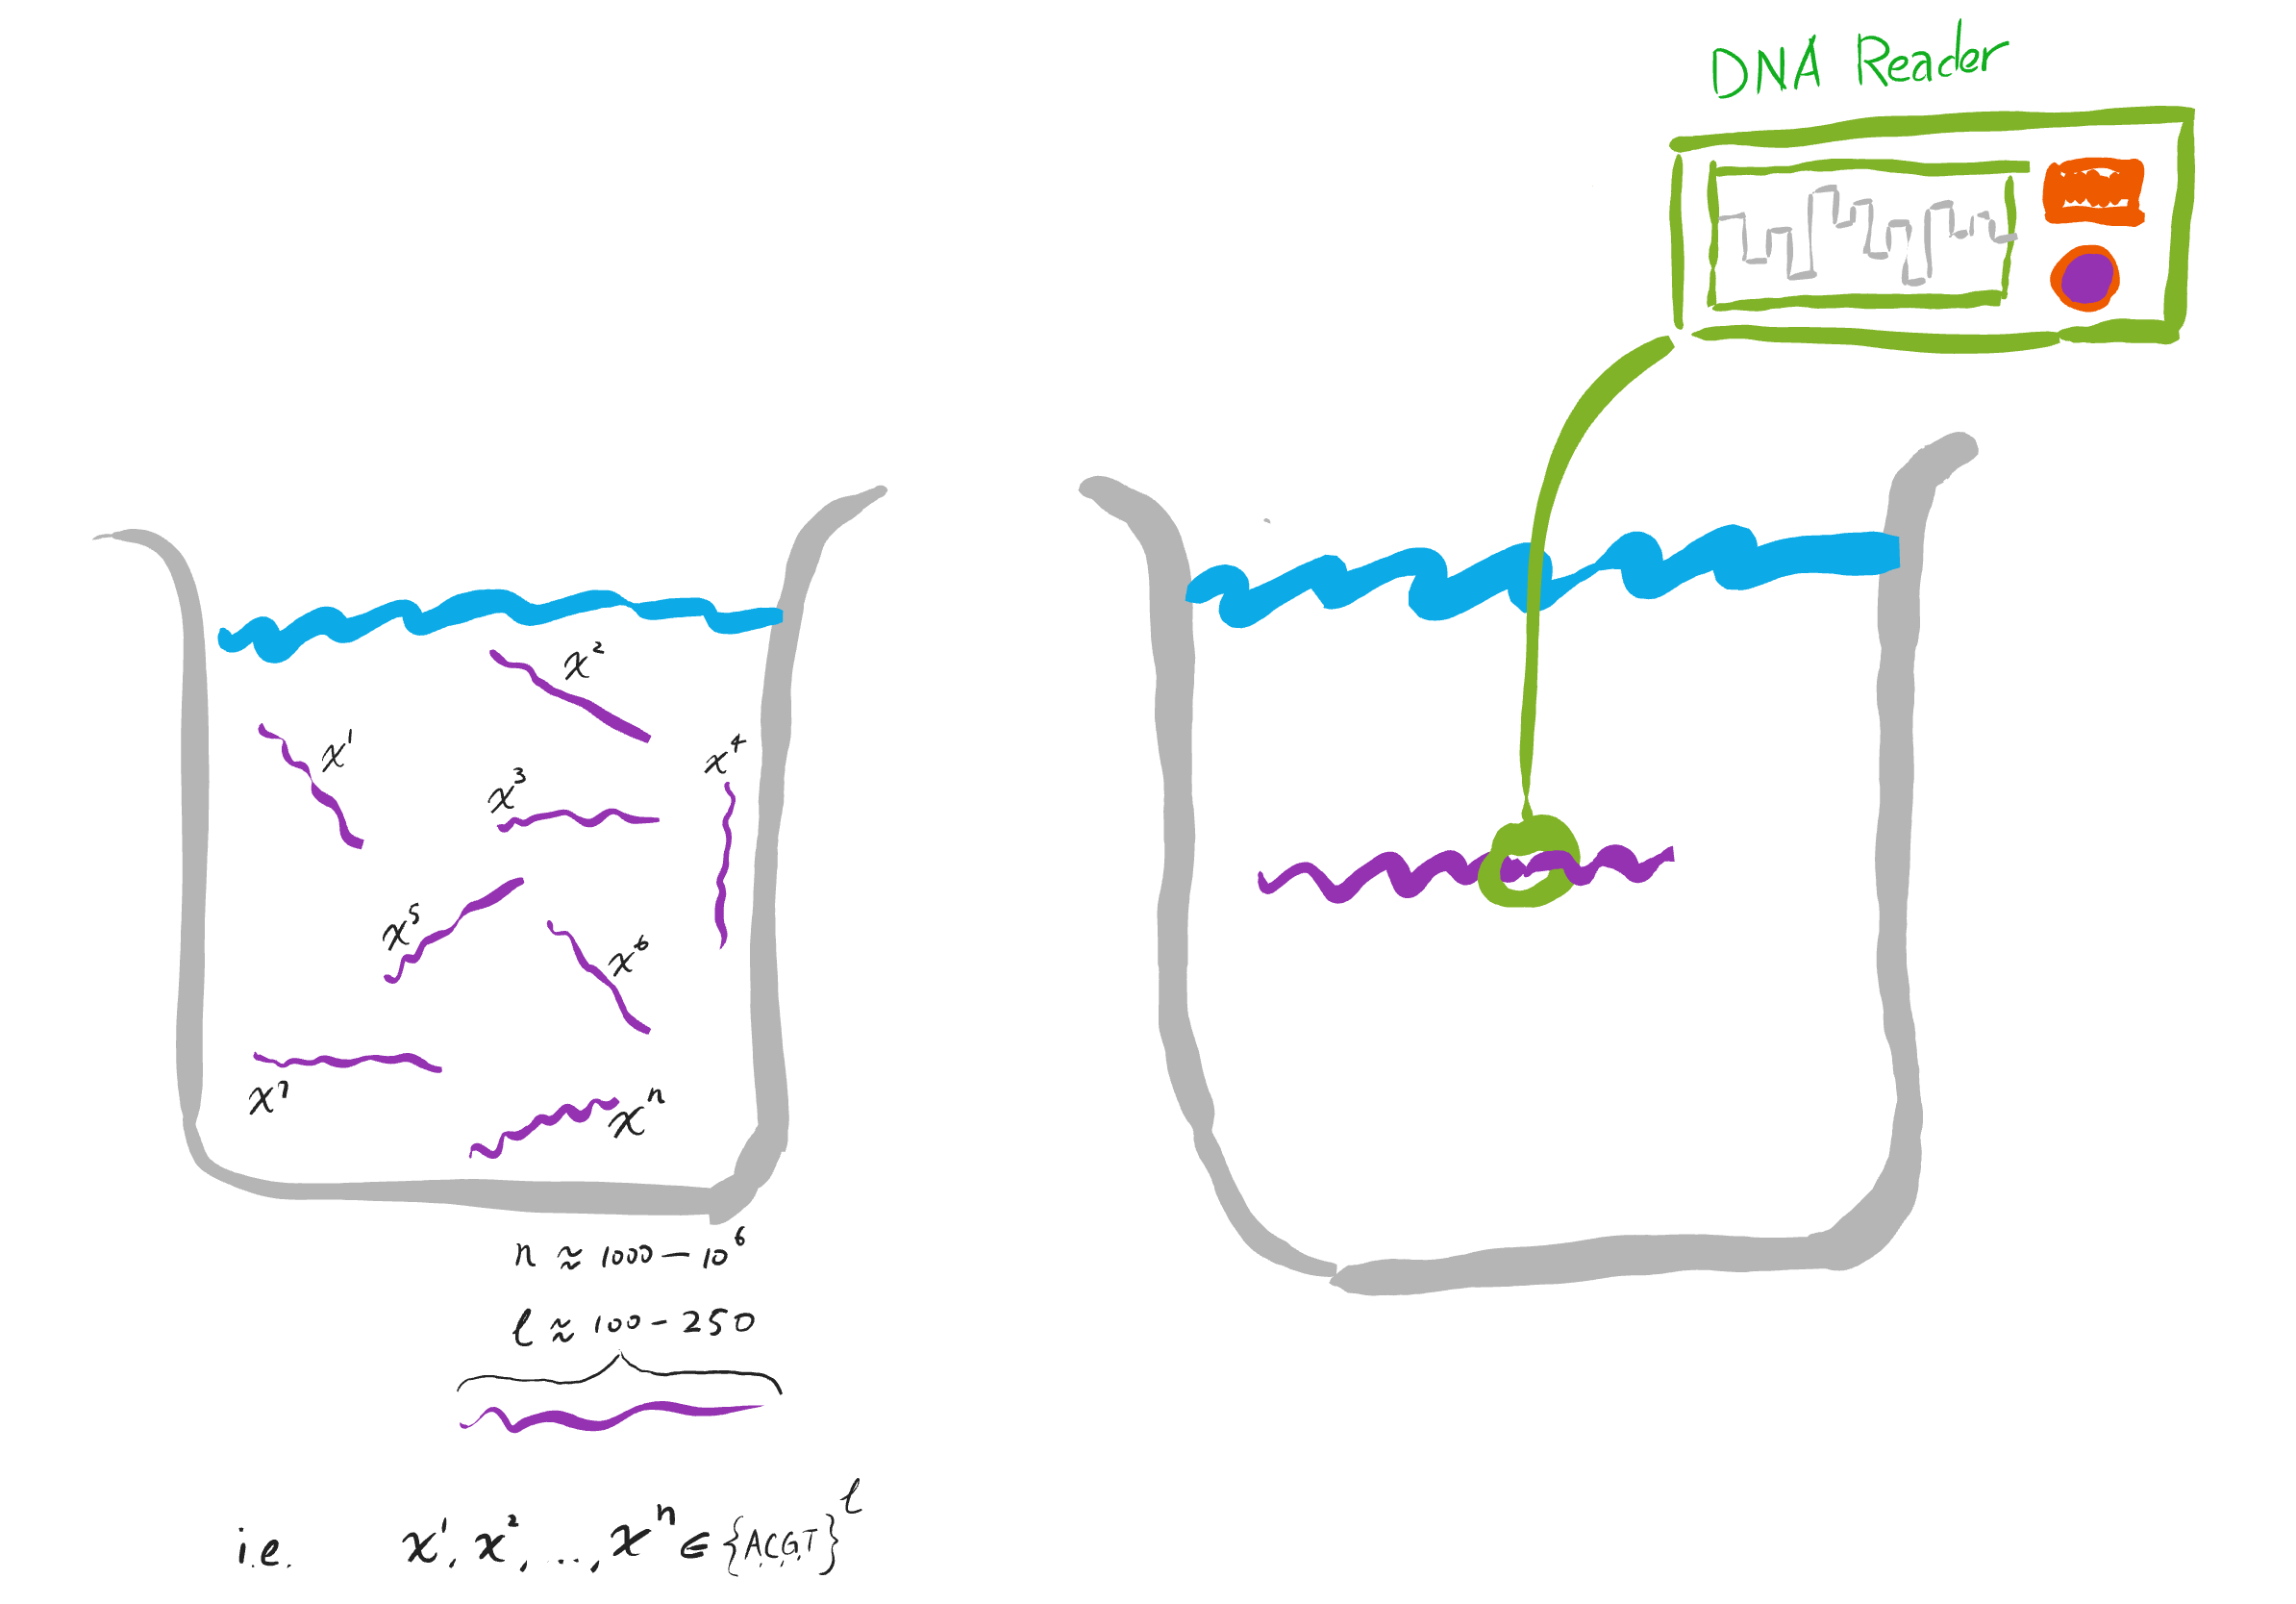 DNA Reader
x²
x¹
x³
x⁴
x⁵
x⁶
x⁷
xⁿ
n ≈ 1000 — 10⁶
ℓ ≈ 100 - 250
i.e. x¹, x², ..., xⁿ ∈ {A,C,G,T}^ℓ